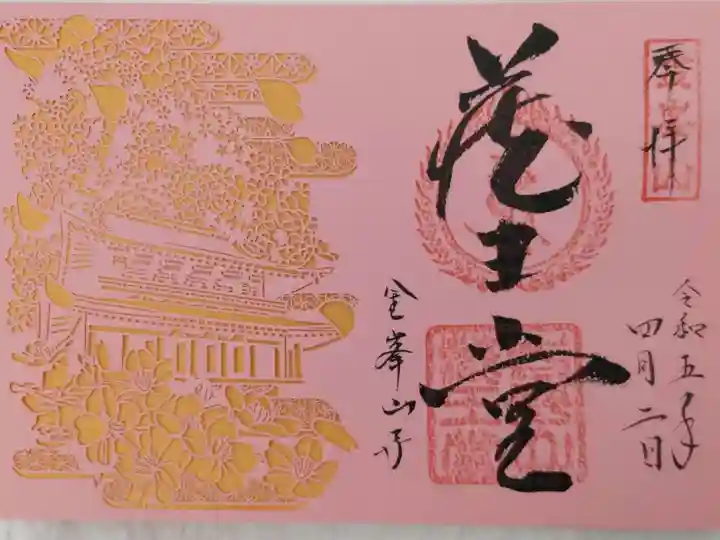 奉拝
令和五年
四月二日
蔵王堂
金峯山寺